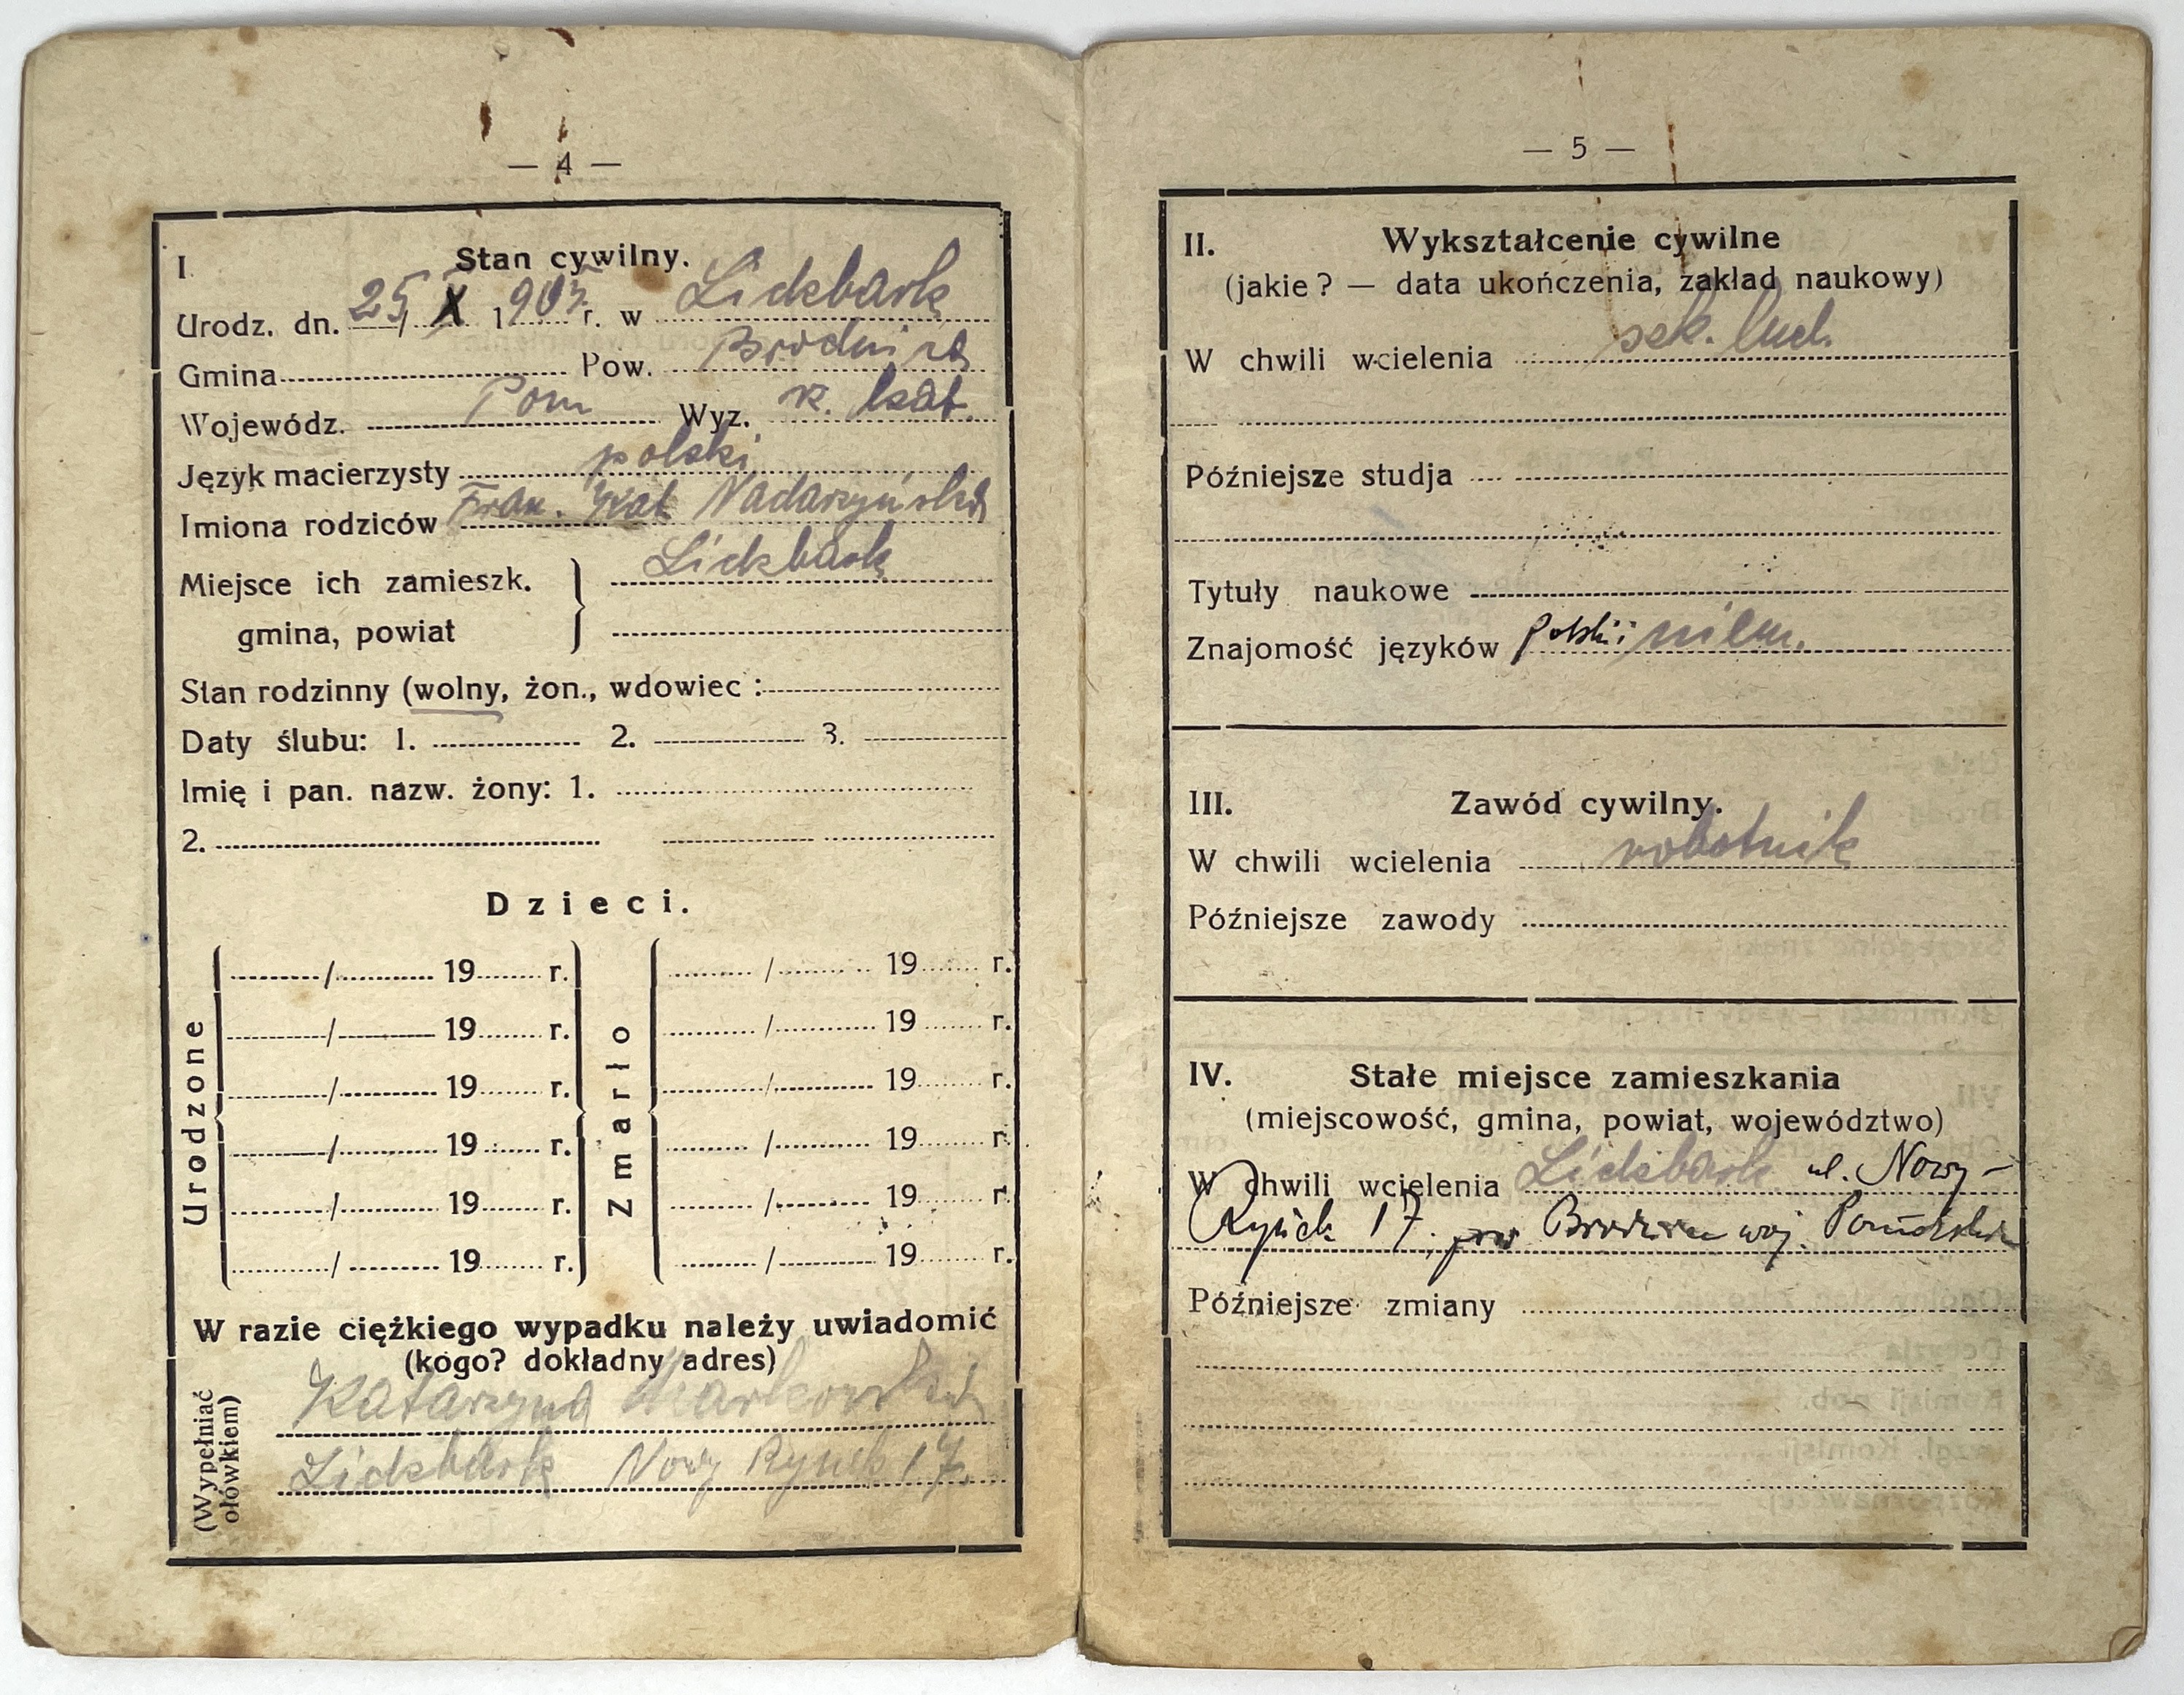 — 4 —
I. Stan cywilny.
Urodz. dn. 25/X 1905 r. w Lidzbark
Gmina Pow. Brodnica
Wojewódz. Pom Wyz. r. kat.
Język macierzysty polski
Imiona rodziców Fran. Kat Nadarzyńska
Lidzbark
Miejsce ich zamieszk.
gmina, powiat
Stan rodzinny (wolny, żon., wdowiec :
Daty ślubu: 1. 2. 3.
Imię i pan. nazw. żony: 1.
2.
Dzieci.
Urodzone
Zmarło
/ 19 r. / 19 r.
/ 19 r. / 19 r.
/ 19 r. / 19 r.
/ 19 r. / 19 r.
/ 19 r. / 19 r.
/ 19 r. / 19 r.
W razie ciężkiego wypadku należy uwiadomić
(kogo? dokładny adres)
(Wypełniać
ołówkiem)
Katarzyna
Lidzbark Nowy Rynek 17.
— 5 —
II. Wykształcenie cywilne
(jakie ? — data ukończenia, zakład naukowy)
W chwili wcielenia szk. lud.
Późniejsze studja
Tytuły naukowe
Znajomość języków polski i niem.
III. Zawód cywilny.
W chwili wcielenia robotnik
Późniejsze zawody
IV. Stałe miejsce zamieszkania
(miejscowość, gmina, powiat, województwo)
W chwili wcielenia Lidzbark ul. Nowy-
Rynek 17. pow Brodnica woj. Pomorskie
Późniejsze zmiany